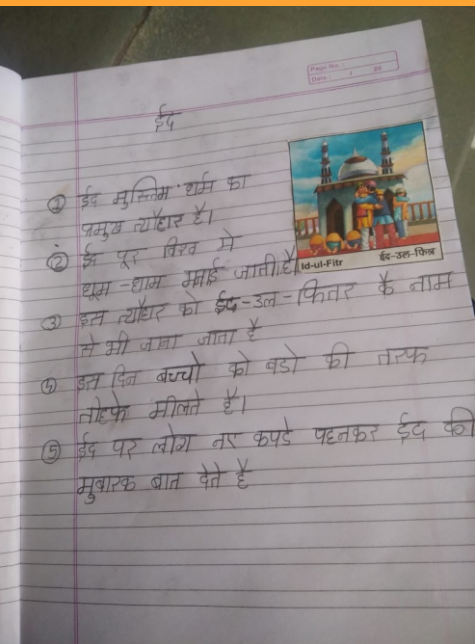 Page No.:
Date: / 20
ईद
① ईद मुस्लिम धर्म का
प्रमुख त्यौहार है।
② ईद पूर विश्व मे
धूम-धाम मनाई जाती है।
Id-ul-Fitr ईद-उल-फित्र
③ इस त्यौहार को ईद-उल-फितर के नाम
से भी जाना जाता है
④ इस दिन बच्चो को बडो की तरफ
तोहफे मीलते है।
⑤ ईद पर लोग नए कपडे पहनकर ईद की
मुबारक बात देते है